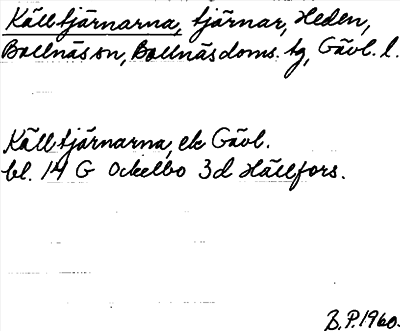 Källtjärnarna, tjärnar, Heden,
Bollnäs sn, Bollnäs doms. tg, Gävl. l.
Källtjärnarna, ek Gävl.
bl. 14 G Ockelbo 3d Hällfors.
B.P. 1960.